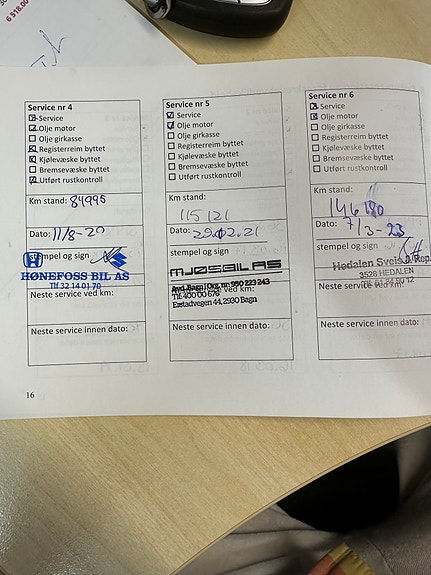 6 518.00
Service nr 4
Service
Olje motor
Olje girkasse
Registerreim byttet
Kjølevæske byttet
Bremsevæske byttet
Utført rustkontroll
Km stand: 84995
Dato: 11/8-20
stempel og sign
HØNEFOSS BIL AS
Tlf 32 14 01 70
Neste service ved km:
Neste service innen dato:
Service nr 5
Service
Olje motor
Olje girkasse
Registerreim byttet
Kjølevæske byttet
Bremsevæske byttet
Utført rustkontroll
Km stand:
115 121
Dato: 29.02.21
stempel og sign
MJØSBIL AS
Avd. Bagn | Org. nr. 990 223 243
Tlf: 400 00 676
ved km:
Erstadvegen 44, 2930 Bagn
Neste service innen dato:
Service nr 6
Service
Olje motor
Olje girkasse
Registerreim byttet
Kjølevæske byttet
Bremsevæske byttet
Utført rustkontroll
Km stand:
146180
Dato: 7/3-23
stempel og sign
Hedalen Sveis &
3528 HEDALEN
Neste service ved km:
Neste service innen dato:
16